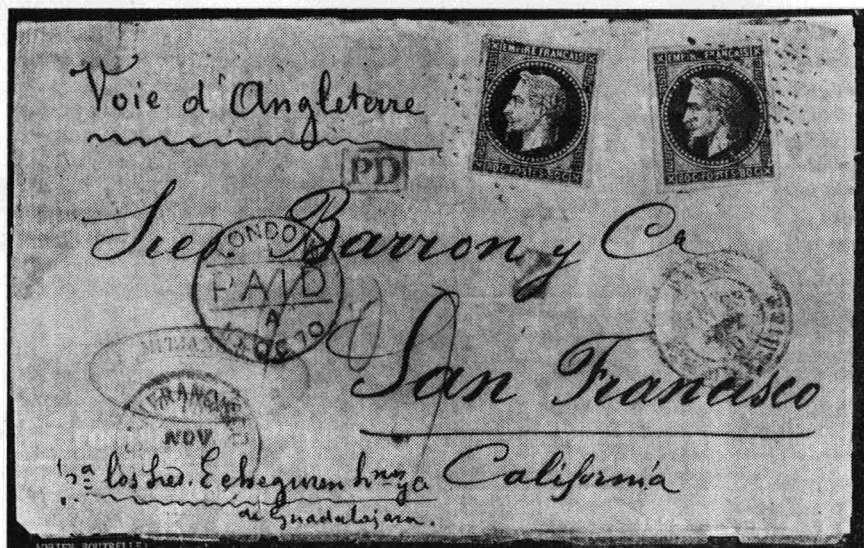 Voie d'Angleterre
EMPIRE FRANÇAIS
80 C. POSTES 80 C.
EMPIRE FRANÇAIS
80 C. POSTES 80 C.
PD
Sres. Barron y Ca
LONDON
PAID
A
OC 70
San Francisco
California
SAN FRANCISCO
NOV
pa. los Sres. Echeguren hnos y Ca
de Guadalajara.